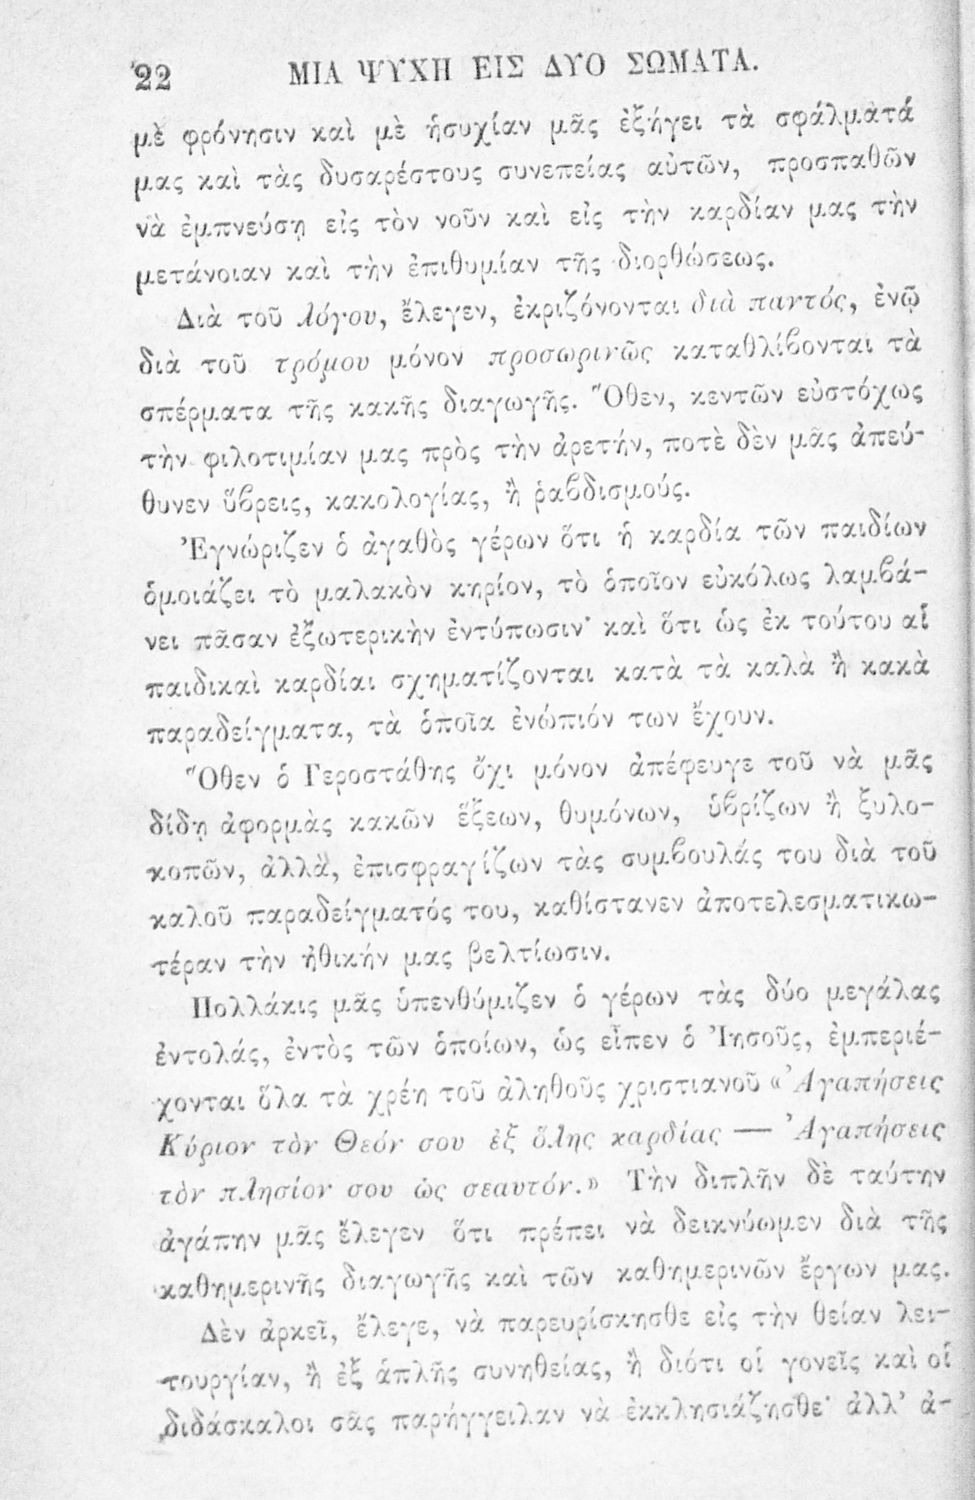 22 ΜΙΑ ΨΥΧΗ ΕΙΣ ΔΥΟ ΣΩΜΑΤΑ.
μὲ φρόνησιν καὶ μὲ ἡσυχίαν μᾶς ἐξήγει τὰ σφάλματά
μας καὶ τὰς δυσαρέστους συνεπείας αὐτῶν, προσπαθῶν
νὰ ἐμπνεύσῃ εἰς τὸν νοῦν καὶ εἰς τὴν καρδίαν μας τὴν
μετάνοιαν καὶ τὴν ἐπιθυμίαν τῆς διορθώσεως.
Διὰ τοῦ λόγου, ἔλεγεν, ἐκριζόνονται διὰ παντός, ἐνῷ
διὰ τοῦ τρόμου μόνον προσωρινῶς καταθλίβονται τὰ
σπέρματα τῆς κακῆς διαγωγῆς. Ὅθεν, κεντῶν εὐστόχως
τὴν φιλοτιμίαν μας πρὸς τὴν ἀρετήν, ποτὲ δὲν μᾶς ἀπεύ-
θυνεν ὕβρεις, κακολογίας, ἢ ῥαβδισμούς.
Ἐγνώριζεν ὁ ἀγαθὸς γέρων ὅτι ἡ καρδία τῶν παιδίων
ὁμοιάζει τὸ μαλακὸν κηρίον, τὸ ὁποῖον εὐκόλως λαμβά-
νει πᾶσαν ἐξωτερικὴν ἐντύπωσιν· καὶ ὅτι ὡς ἐκ τούτου αἱ
παιδικαὶ καρδίαι σχηματίζονται κατὰ τὰ καλὰ ἢ κακὰ
παραδείγματα, τὰ ὁποῖα ἐνώπιόν των ἔχουν.
Ὅθεν ὁ Γεροστάθης ὄχι μόνον ἀπέφευγε τοῦ νὰ μᾶς
δίδῃ ἀφορμὰς κακῶν ἕξεων, θυμόνων, ὑβρίζων ἢ ξυλο-
κοπῶν, ἀλλὰ, ἐπισφραγίζων τὰς συμβουλάς του διὰ τοῦ
καλοῦ παραδείγματός του, καθίστανεν ἀποτελεσματικω-
τέραν τὴν ἠθικήν μας βελτίωσιν.
Πολλάκις μᾶς ὑπενθύμιζεν ὁ γέρων τὰς δύο μεγάλας
ἐντολάς, ἐντὸς τῶν ὁποίων, ὡς εἶπεν ὁ Ἰησοῦς, ἐμπεριέ-
χονται ὅλα τὰ χρέη τοῦ ἀληθοῦς χριστιανοῦ «Ἀγαπήσεις
Κύριον τὸν Θεόν σου ἐξ ὅλης καρδίας — Ἀγαπήσεις
τὸν πλησίον σου ὡς σεαυτόν.» Τὴν διπλῆν δὲ ταύτην
ἀγάπην μᾶς ἔλεγεν ὅτι πρέπει νὰ δεικνύωμεν διὰ τῆς
καθημερινῆς διαγωγῆς καὶ τῶν καθημερινῶν ἔργων μας.
Δὲν ἀρκεῖ, ἔλεγε, νὰ παρευρίσκησθε εἰς τὴν θείαν λει-
τουργίαν, ἢ ἐξ ἁπλῆς συνηθείας, ἢ διότι οἱ γονεῖς καὶ οἱ
διδάσκαλοι σᾶς παρήγγειλαν νὰ ἐκκλησιάζησθε· ἀλλ' ἀ-